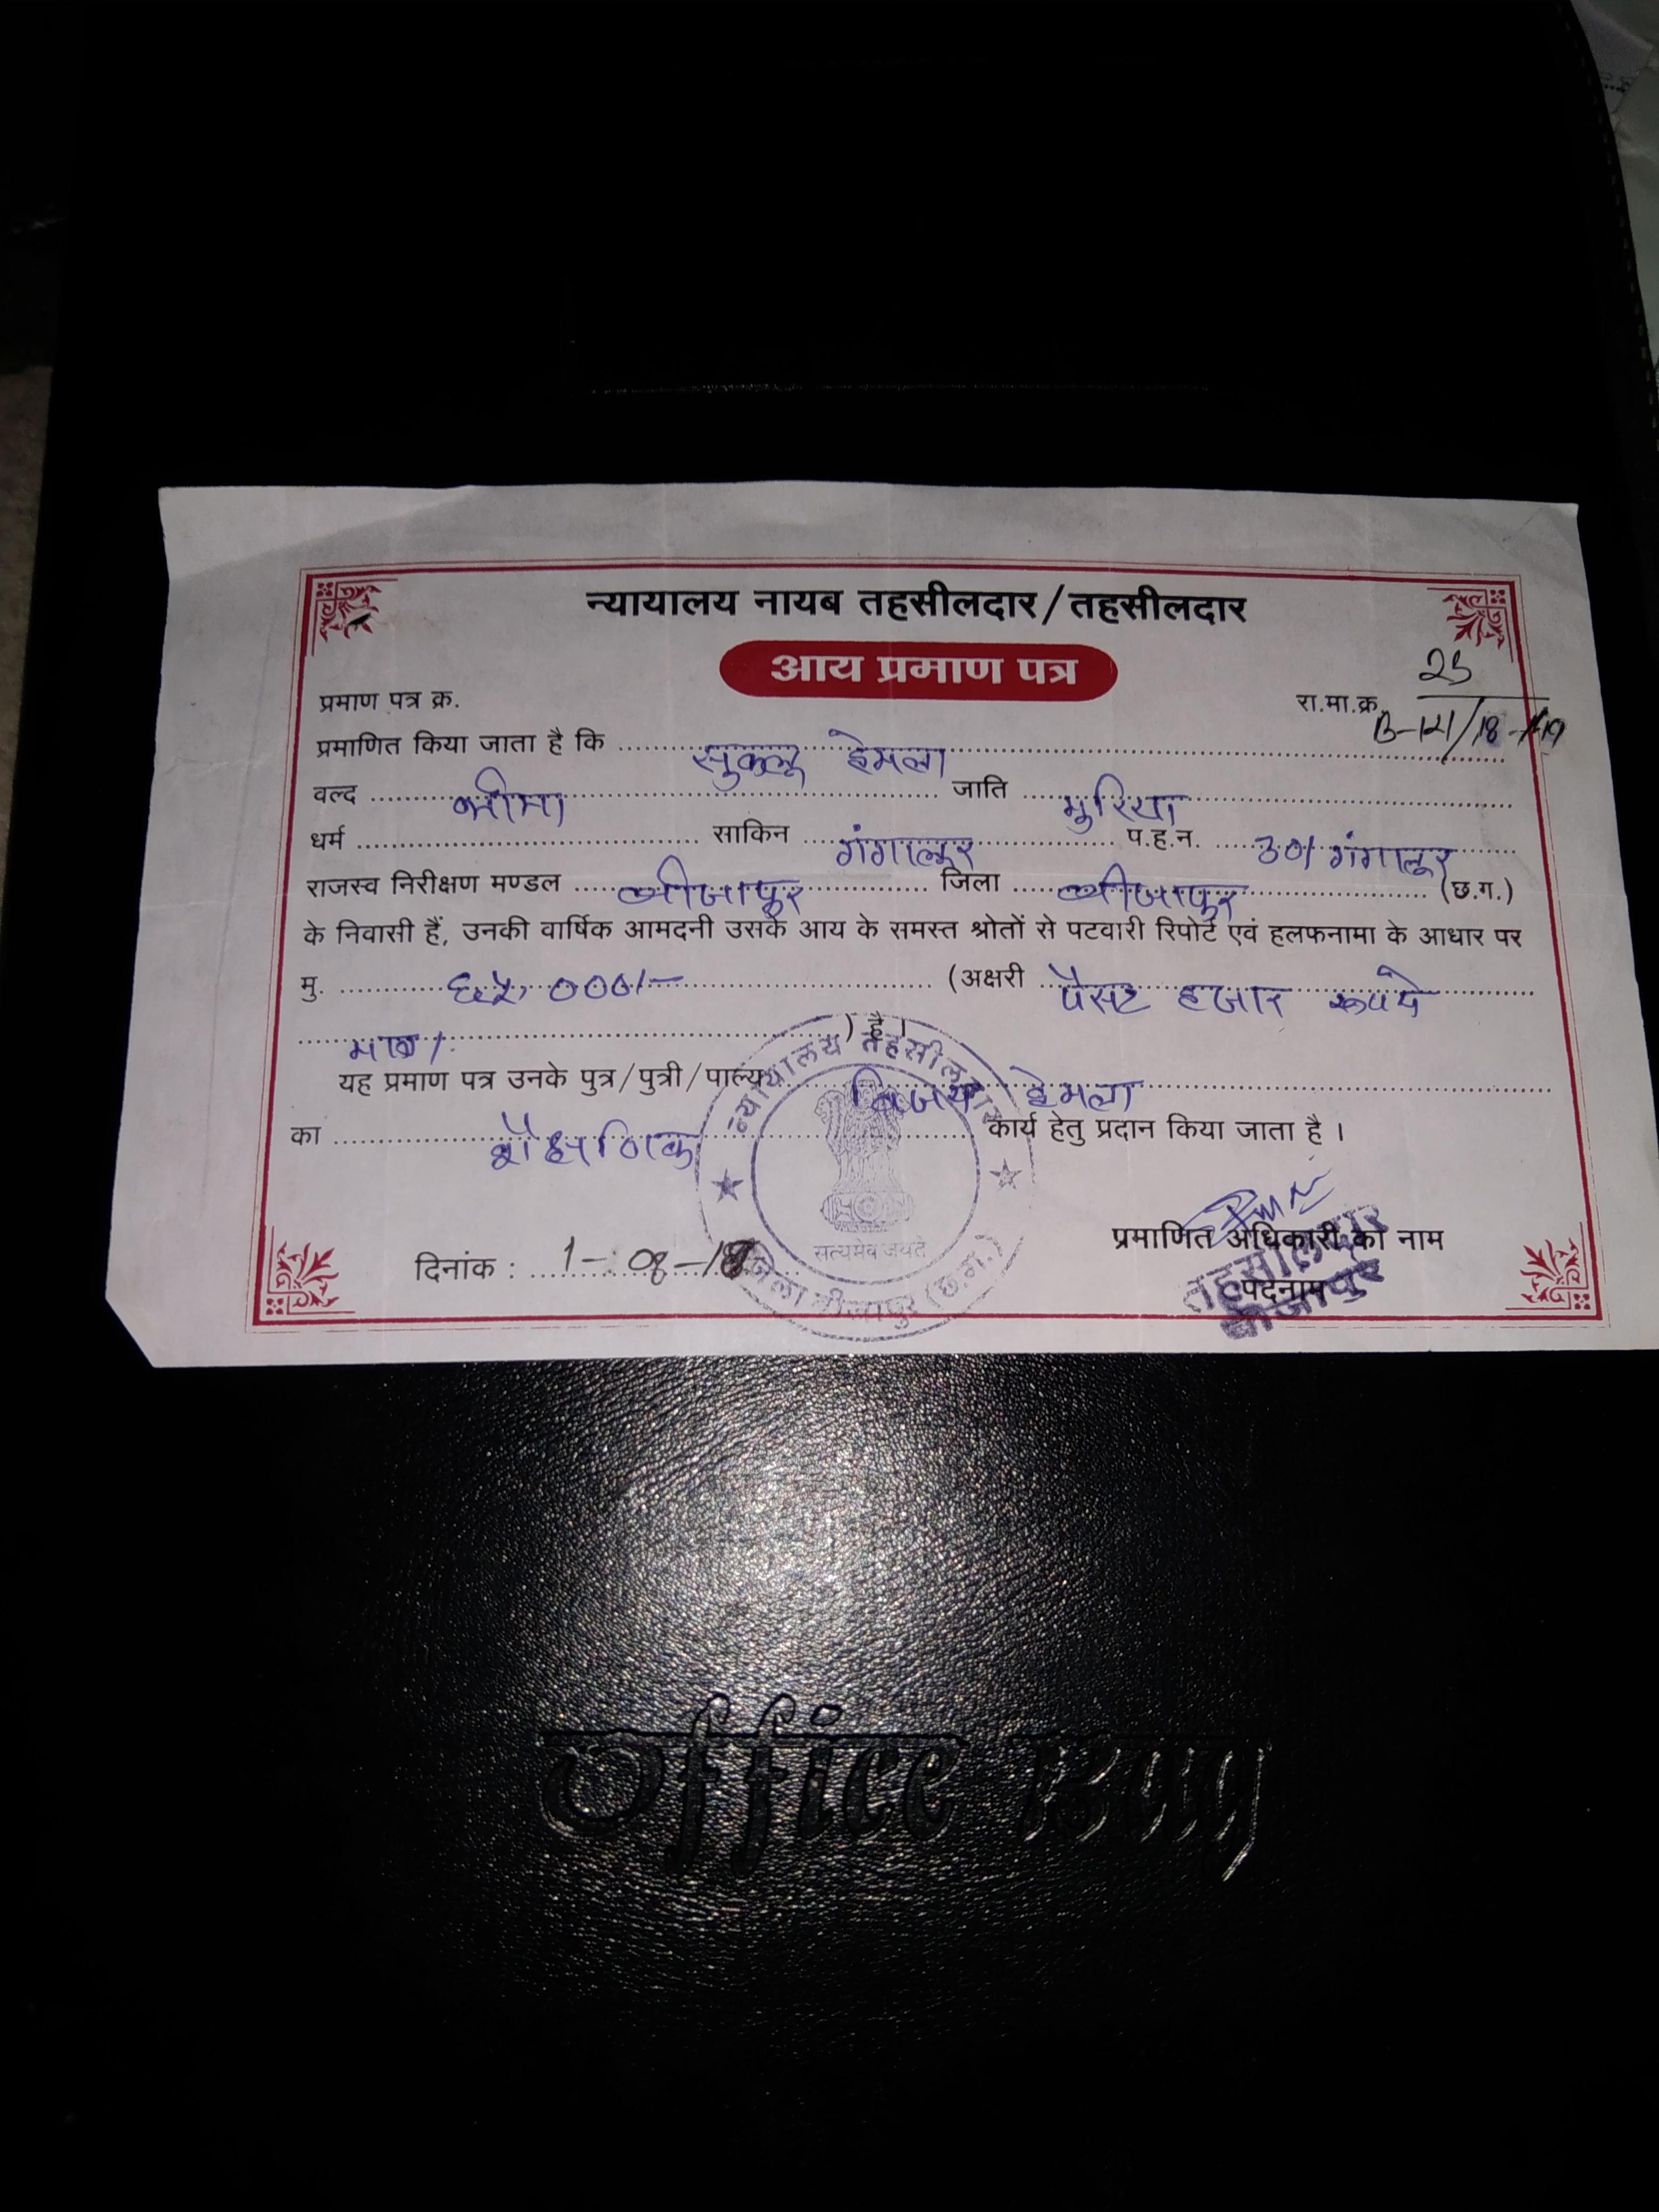 न्यायालय नायब तहसीलदार/तहसीलदार
आय प्रमाण पत्र
प्रमाण पत्र क्र. रा.मा.क्र. 25
B-121/18-19
प्रमाणित किया जाता है कि सुक्लू हेमला
वल्द भीमा जाति मुरिया
धर्म साकिन गंगालूर प.ह.न. 30/गंगालूर
राजस्व निरीक्षण मण्डल बीजापुर जिला बीजापुर (छ.ग.)
के निवासी हैं, उनकी वार्षिक आमदनी उसके आय के समस्त श्रोतों से पटवारी रिपोर्ट एवं हलफनामा के आधार पर
मु. ६५,०००/- (अक्षरी पैसट हजार रूपये
मात्र/.) है।
यह प्रमाण पत्र उनके पुत्र/पुत्री/पाल्य विजय हेमला
का शैक्षणिक कार्य हेतु प्रदान किया जाता है।
प्रमाणित अधिकारी का नाम
दिनांक : 1-08-18
पदनाम
तहसीलदार
बीजापुर
न्यायालय तहसीलदार
सत्यमेव जयते
जिला बीजापुर (छ.ग.)
Office Bag